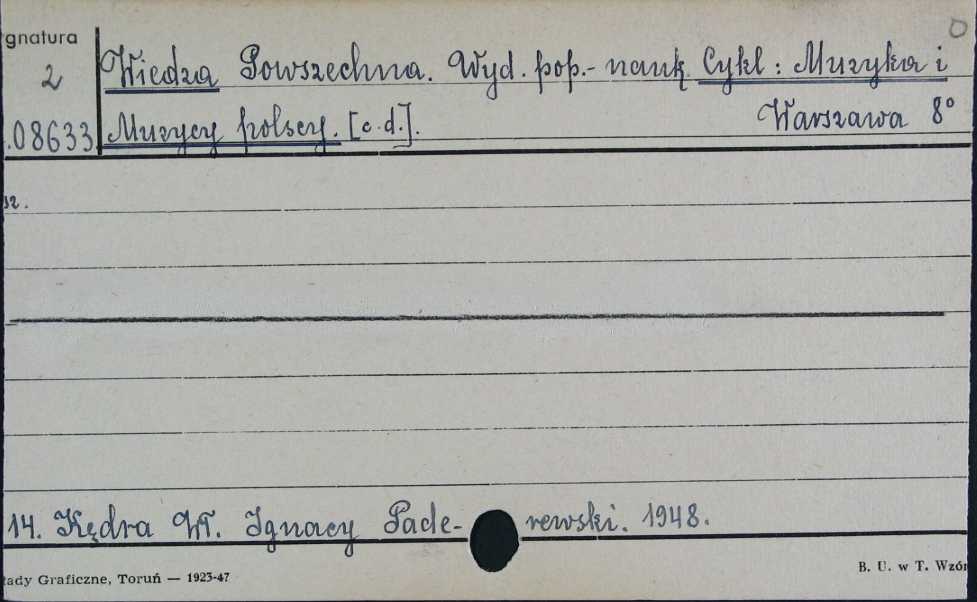 gnatura
2
.08633
Wiedza Powszechna. Wyd. pop.-nauk. Cykl: Muzyka i
Muzycy polscy. [c.d.]. Warszawa 8°
sz.
14. Kędra Wł. Ignacy Pade-rewski. 1948.
łady Graficzne, Toruń — 1923-47
B. U. w T. Wzór